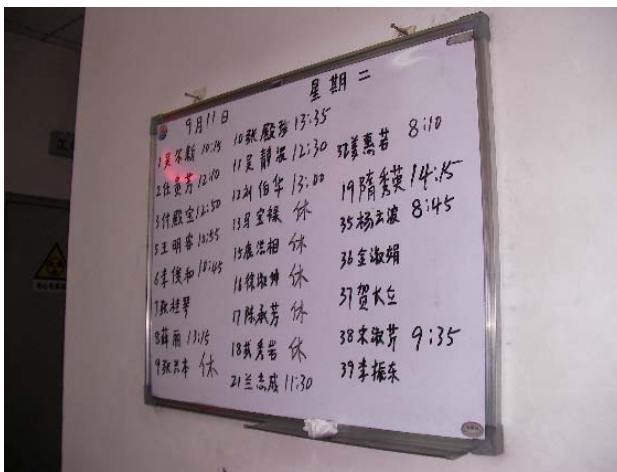 9月11日
星期二
1吴尔龄 10:15
2任英芳 12:10
3付殿宝 12:50
5王明容 10:55
6李俊和 10:45
7张桂琴
8薛丽 13:15
9张兴本 休
10张殿珍 13:35
11吴静波 12:30
12刘伯华 13:00
13马宝禄 休
15庞洪相 休
16徐淑坤 休
17陈永芳 休
18武秀岩 休
21兰志成 11:30
姜惠若 8:10
19隋秀英 14:15
35杨玄波 8:45
36金淑娟
37贺大立
38宋淑芳 9:35
39李振东